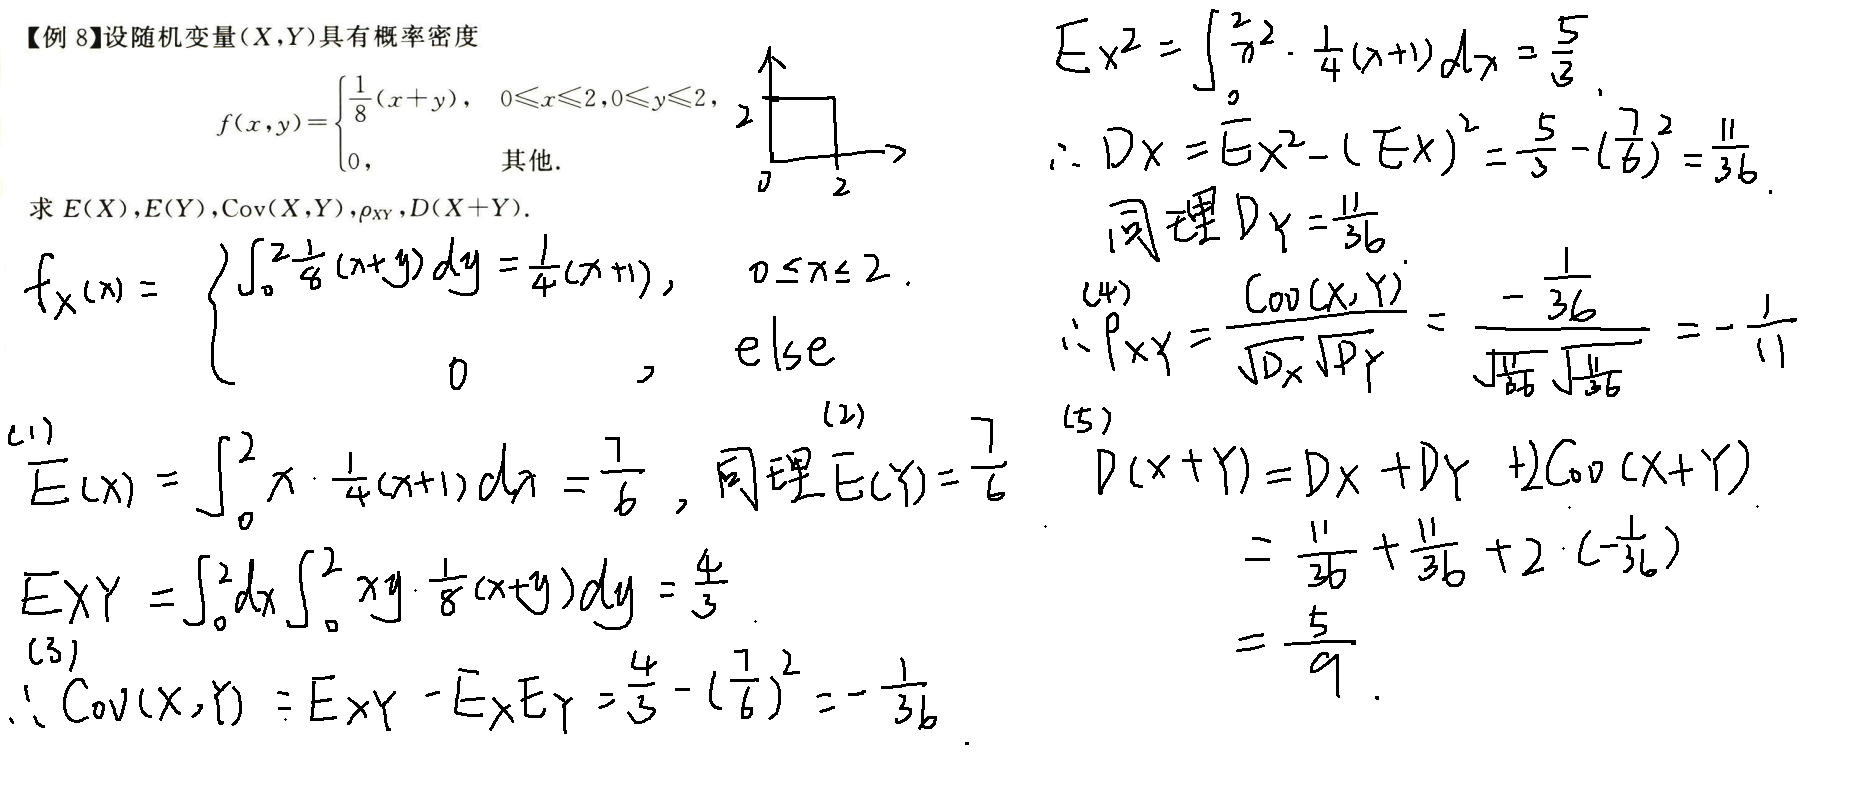 【例 8】设随机变量(X,Y)具有概率密度
f(x,y)={ 1/8(x+y), 0≤x≤2,0≤y≤2,
0, 其他.
求 E(X),E(Y),Cov(X,Y),ρXY,D(X+Y).
2
0 2
fX(x) = { ∫₀² 1/8(x+y)dy = 1/4(x+1), 0≤x≤2.
0 , else
(1) E(X) = ∫₀² x·1/4(x+1)dx = 7/6 , 同理 (2) E(Y) = 7/6
EXY = ∫₀²dx∫₀² xy·1/8(x+y)dy = 4/3.
(3)
∴ Cov(X,Y) = EXY - EXEY = 4/3 - (7/6)² = - 1/36.
EX² = ∫₀² x²·1/4(x+1)dx = 5/3.
∴ DX = EX² - (EX)² = 5/3 - (7/6)² = 11/36.
同理 DY = 11/36.
(4)
∴ ρXY = Cov(X,Y)/√DX√DY = -1/36/√11/36√11/36 = - 1/11
(5)
D(X+Y) = DX + DY +2Cov(X+Y)
= 11/36 + 11/36 + 2·(-1/36)
= 5/9.